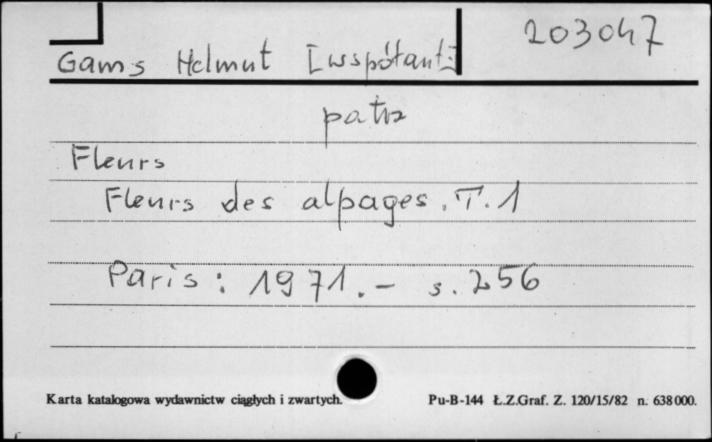 203047
Gams Helmut [współaut.]
patrz
Fleurs
Fleurs des alpages. T. 1
Paris : 1971. - s. 256
Karta katalogowa wydawnictw ciągłych i zwartych.
Pu-B-144 Ł.Z.Graf. Z. 120/15/82 n. 638000.